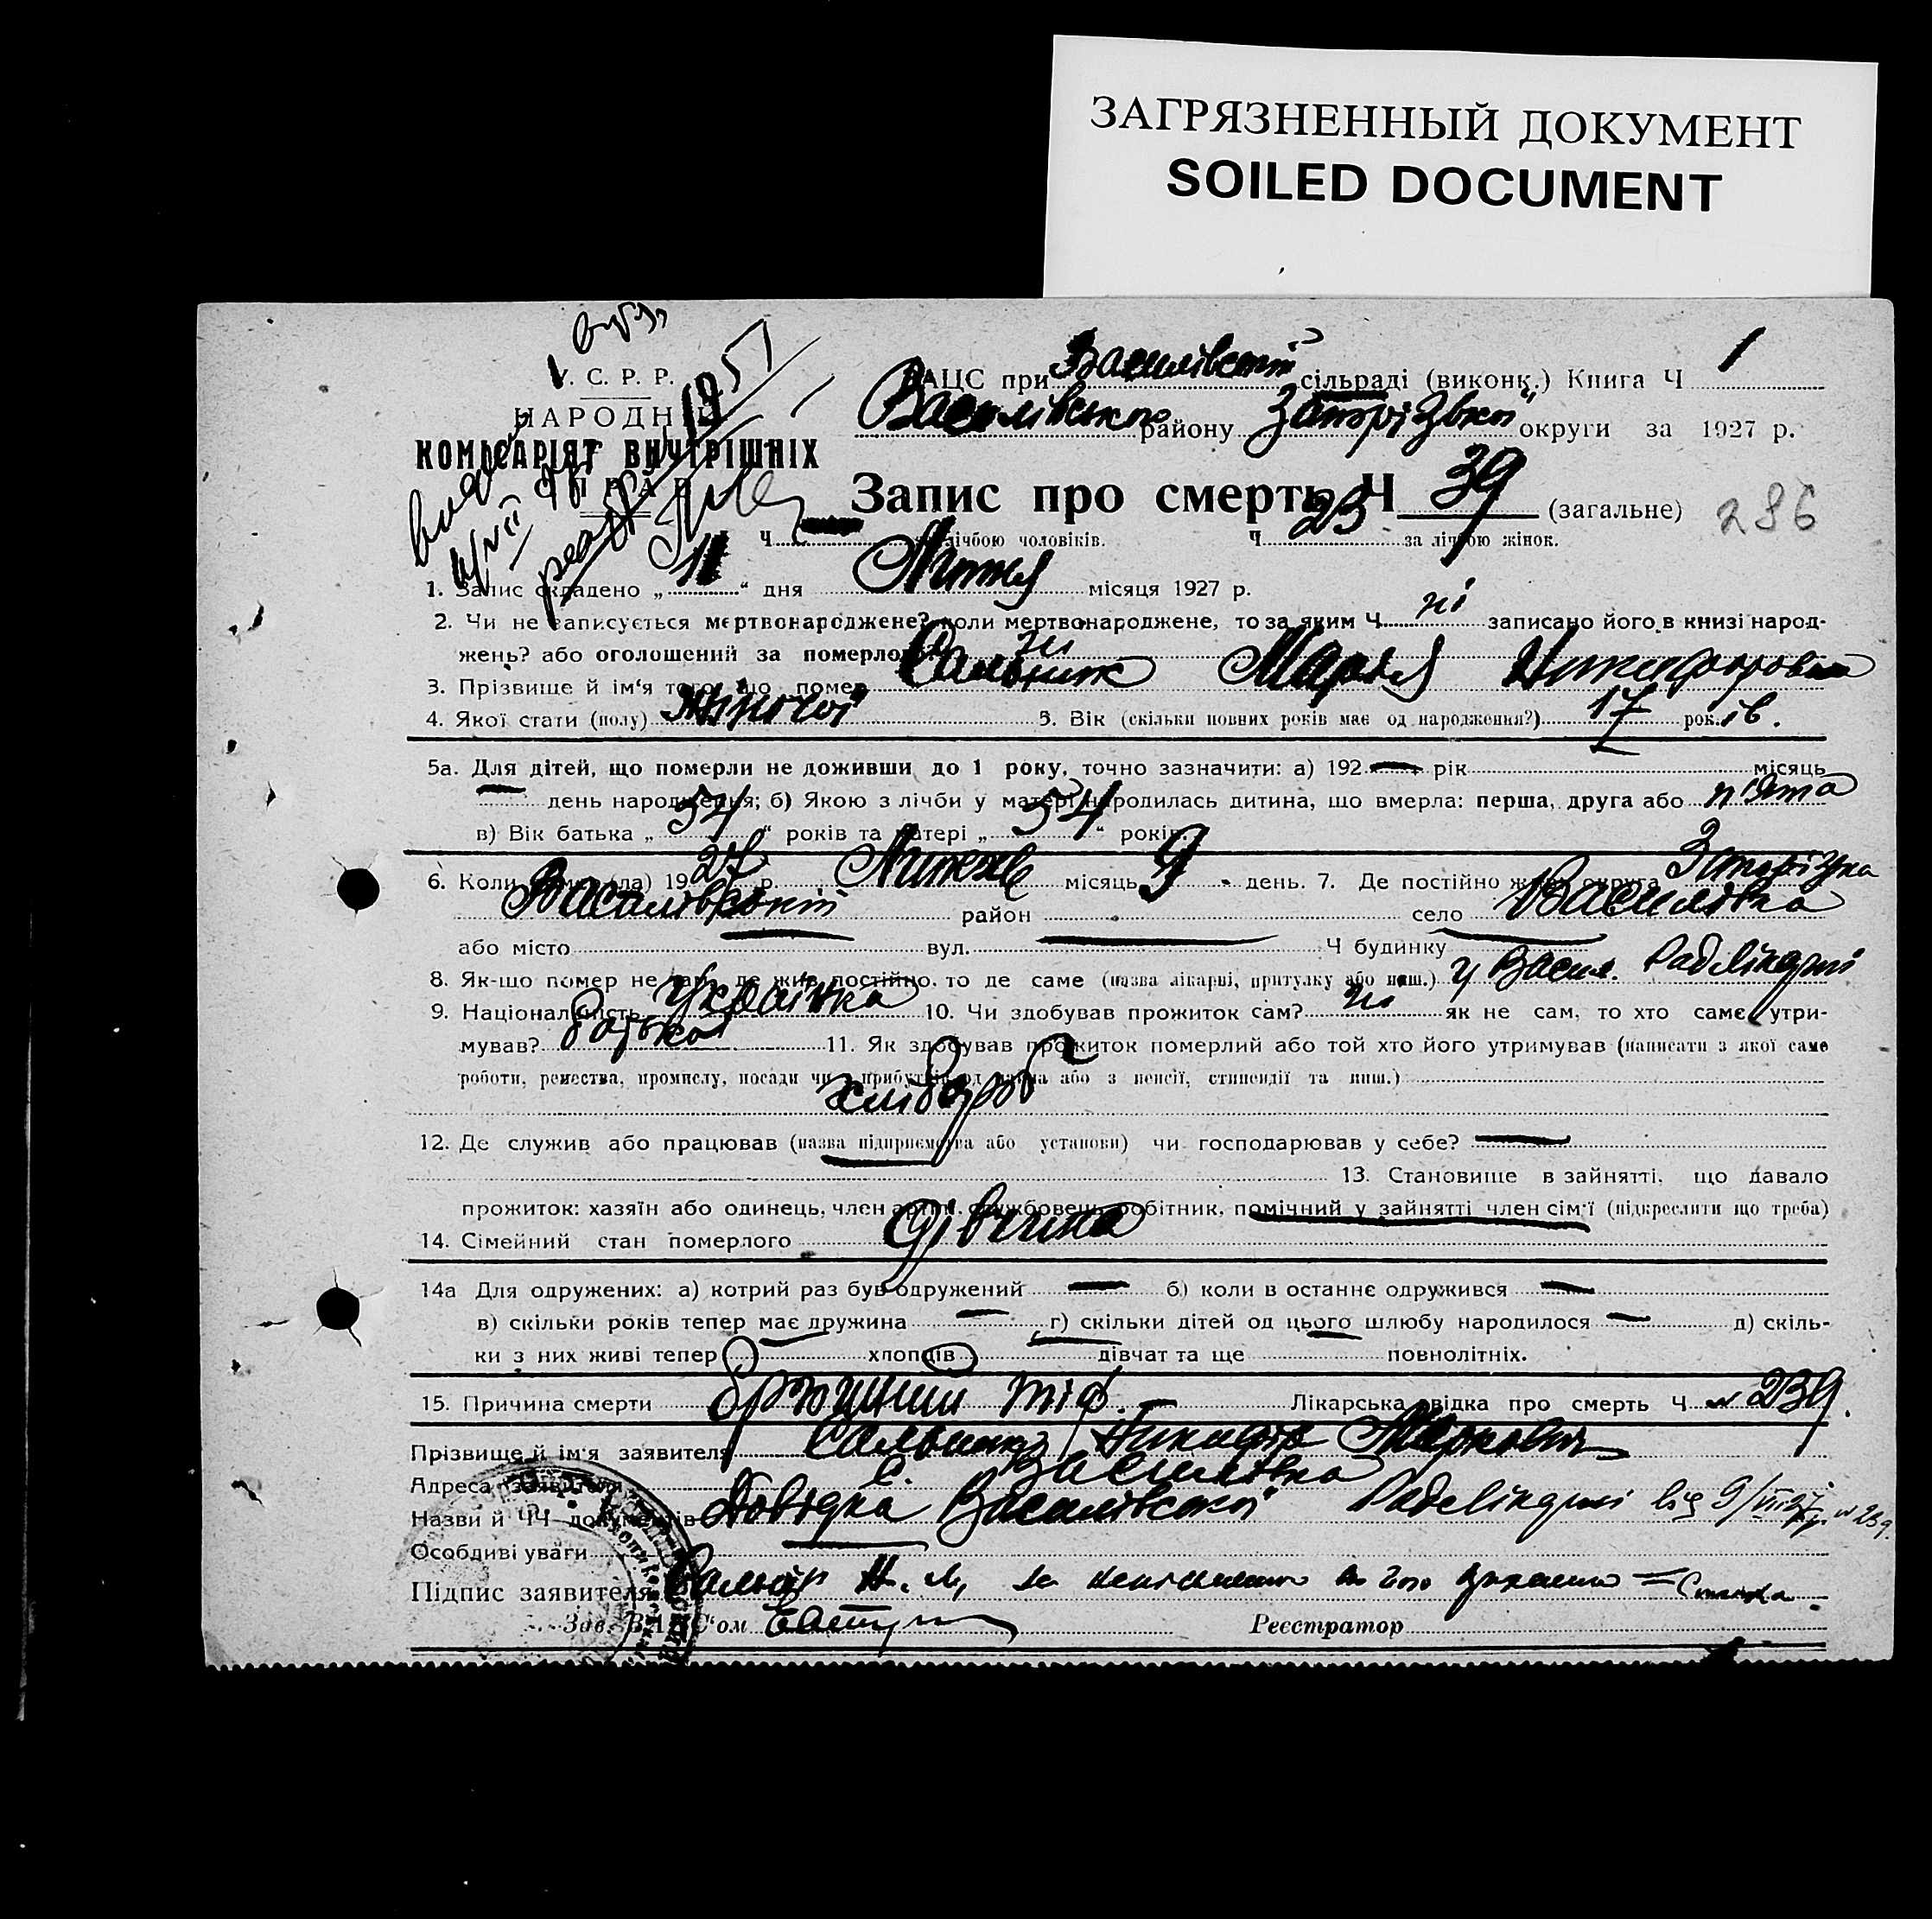 ЗАГРЯЗНЕННЫЙ ДОКУМЕНТ
SOILED DOCUMENT
У. С. Р. Р.
НАРОДНІЙ
КОМІСАРІЯТ ВНУТРІШНІХ
СПРАВ
1951
ЗАЦС при Василівській сільраді (виконк.) Книга Ч 1
Василівського району Запорізької округи за 1927 р.
Запис про смерть Ч 39 (загальне) 286
Ч за лічбою чоловіків. Ч 23 за лічбою жінок.
1. Запис складено „ 11 “ дня Липня місяця 1927 р.
2. Чи не записується мертвонароджене? коли мертвонароджене, то за яким Ч ні записано його в книзі народ-
жень? або оголошений за померлого? ні
3. Прізвище й ім‘я того, що помер Сальник Марія Никифоровна
4. Якої стати (полу) жіночої 5. Вік (скільки повних років має од народження?) 17 рок.ів.
5а. Для дітей, що померли не доживши до 1 року, точно зазначити: а) 192 — рік місяць
— день народження; б) Якою з лічби у матері народилась дитина, що вмерла: перша, друга або п'ята
в) Вік батька „ 54 “ років та матері „ 54 “ років.
6. Коли помер (ла) 1927 р. Липня місяць 9 день. 7. Де постійно жив: округа Запорізька
Василівський район село Василівка
або місто вул. Ч будинку
8. Як-що помер не там, де жив постійно, то де саме (назва лікарні, притулку або инш.) у Васил. Радлікарні
9. Національність Українка 10. Чи здобував прожиток сам? ні як не сам, то хто саме утри-
мував? батько 11. Як здобував прожиток померлий або той хто його утримував (написати з якої саме
роботи, ремества, промислу, посади чи з прибутків од майна або з пенсії, стипендії та инш.)
хлібороб
12. Де служив або працював (назва підприємства або установи) чи господарював у себе? —
13. Становище в зайнятті, що давало
прожиток: хазяїн або одинець, член артілі, службовець, робітник, помічний у зайнятті член сім‘ї (підкреслити що треба)
14. Сімейний стан померлого дівчина
14а Для одружених: а) котрий раз був одружений — б) коли в останнє одружився —
в) скільки років тепер має дружина — г) скільки дітей од цього шлюбу народилося — д) скіль-
ки з них живі тепер хлопців дівчат та ще повнолітніх.
15. Причина смерти брюшний тіф. — Лікарська звідка про смерть Ч № 239.
Прізвище й ім‘я заявителя Сальник Никифор Маркович
Адреса заявителя с. Василівка
Назви й ЧЧ документів Довідка Василівської Радлікарні від 9/VII 27 р. № 239.
Особливі уваги
Підпис заявителя Сальник Н. М,
Зав. ЗАЦС‘ом Реєстратор